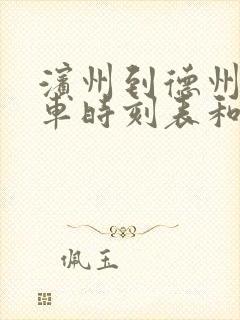 滨州到德州
车时刻表和
佩玉